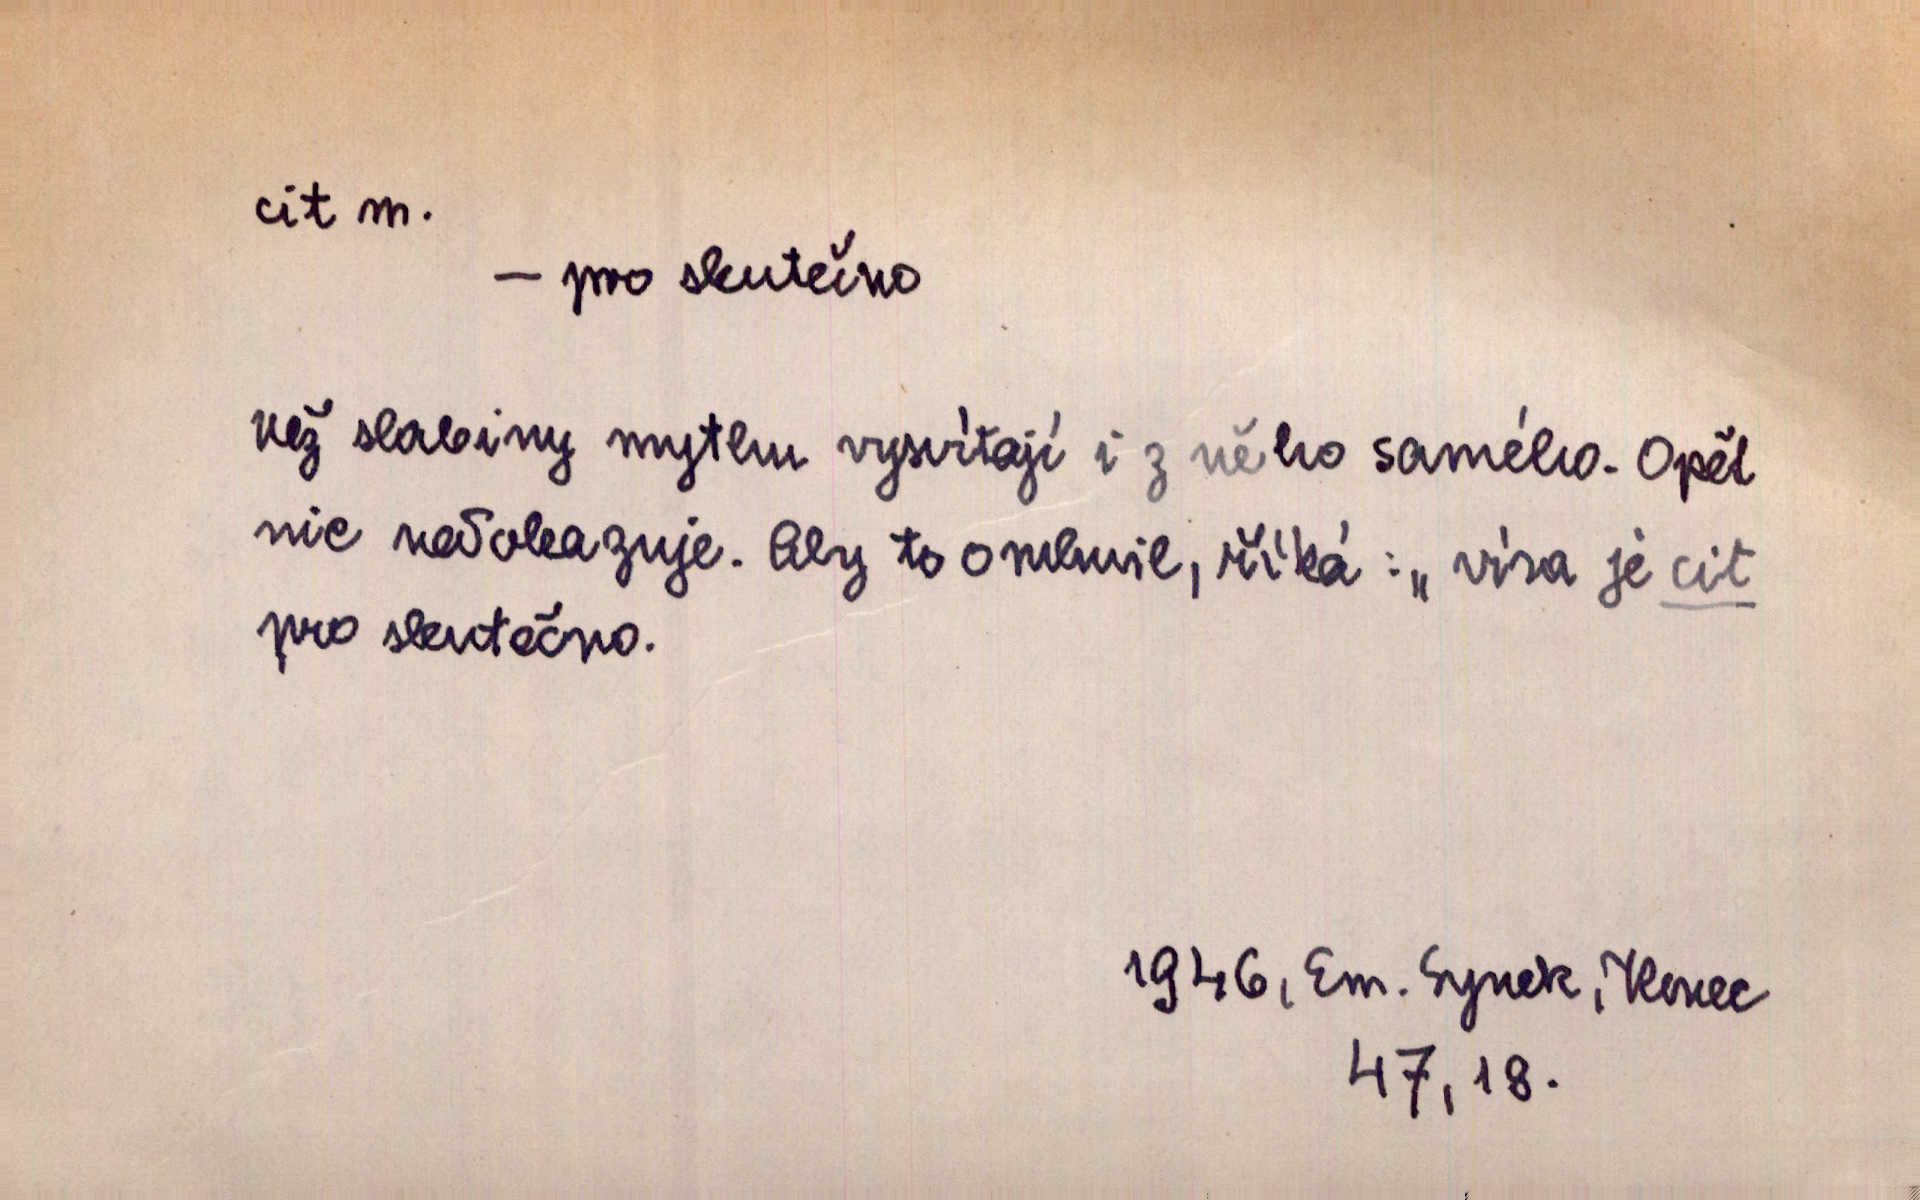 cit m.
– pro skutečno
Než slabiny mythu vysvítají i z něho samého. Opět
nic nedokazuje. Aby to omluvil, říká: „víra je cit
pro skutečno.
1946, Em. Synek, Konec
47, 18.